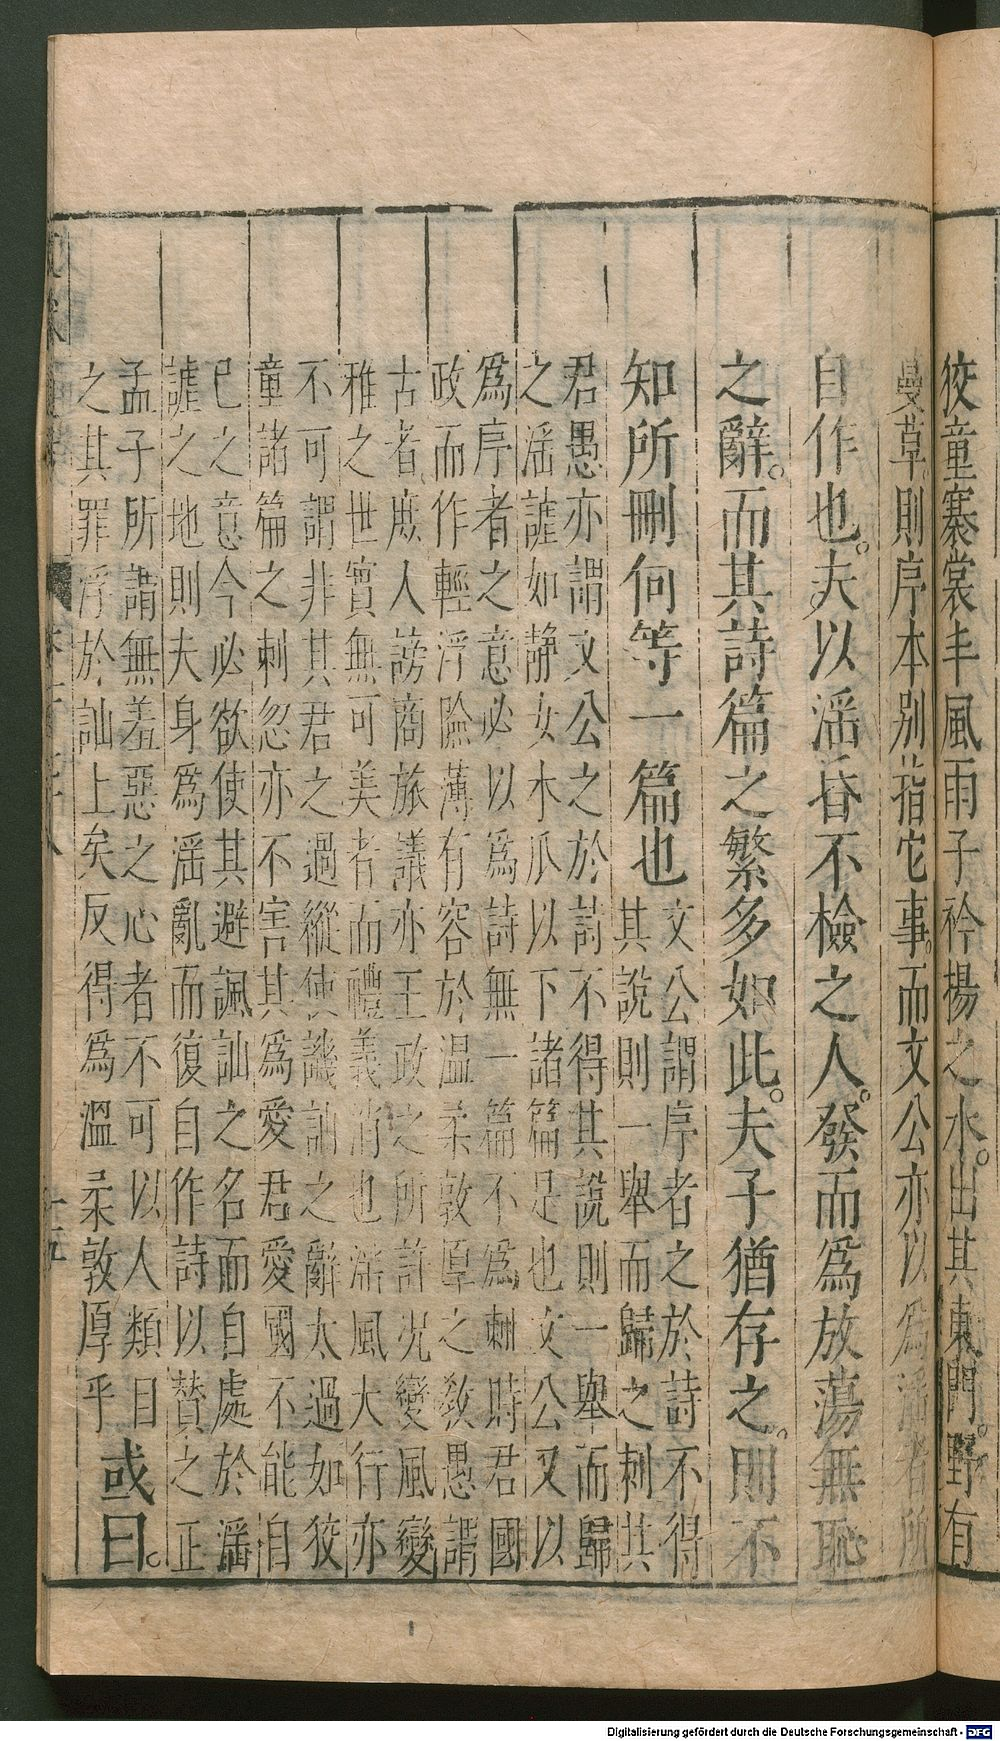 狡童褰裳丰風雨子衿揚之水。出其東門。野有
蔓草。則序本别指它事。而文公亦以爲淫者所
自作也。夫以淫昏不檢之人。發而爲放蕩無恥
之辭。而其詩篇之繁多如此。夫子猶存之。則不
知所刪何等一篇也
文公謂序者之於詩不得
其說則一舉而歸之刺其
君愚亦謂文公之於詩不得其說則一舉而歸
之淫謔如静女木瓜以下諸篇是也文公又以
爲序者之意必以爲詩無一篇不爲刺時君國
政而作輕浮險薄有容於温柔敦厚之教愚謂
古者庶人謗商旅議亦王政之所許况變風變
雅之世實無可美者而禮義消也淫風大行亦
不可謂非其君之過縱使譏訕之辭太過如狡
童諸篇之刺忽亦不害其爲愛君愛國不能自
已之意今必欲使其避諷訕之名而自處於淫
謔之地則夫身爲淫亂而復自作詩以賛之正
孟子所謂無羞惡之心者不可以人類目
之其罪浮於訕上矣反得爲溫柔敦厚乎
或曰。
十五
Digitalisierung gefördert durch die Deutsche Forschungsgemeinschaft - DFG